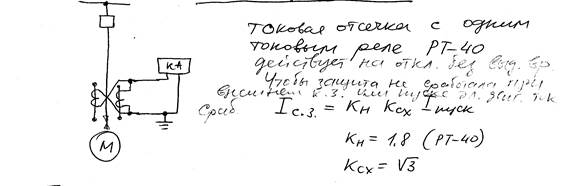 КА
М
токовая отсечка с одним
токовым реле РТ-40
действует на откл. без выд. вр.
Чтобы защита не сработала при
внешнем к.з. или пуске эл. двиг. ток
сраб I с.з. = Kн Kсх Iпуск
Kн = 1,8 (РТ-40)
Kсх = √3